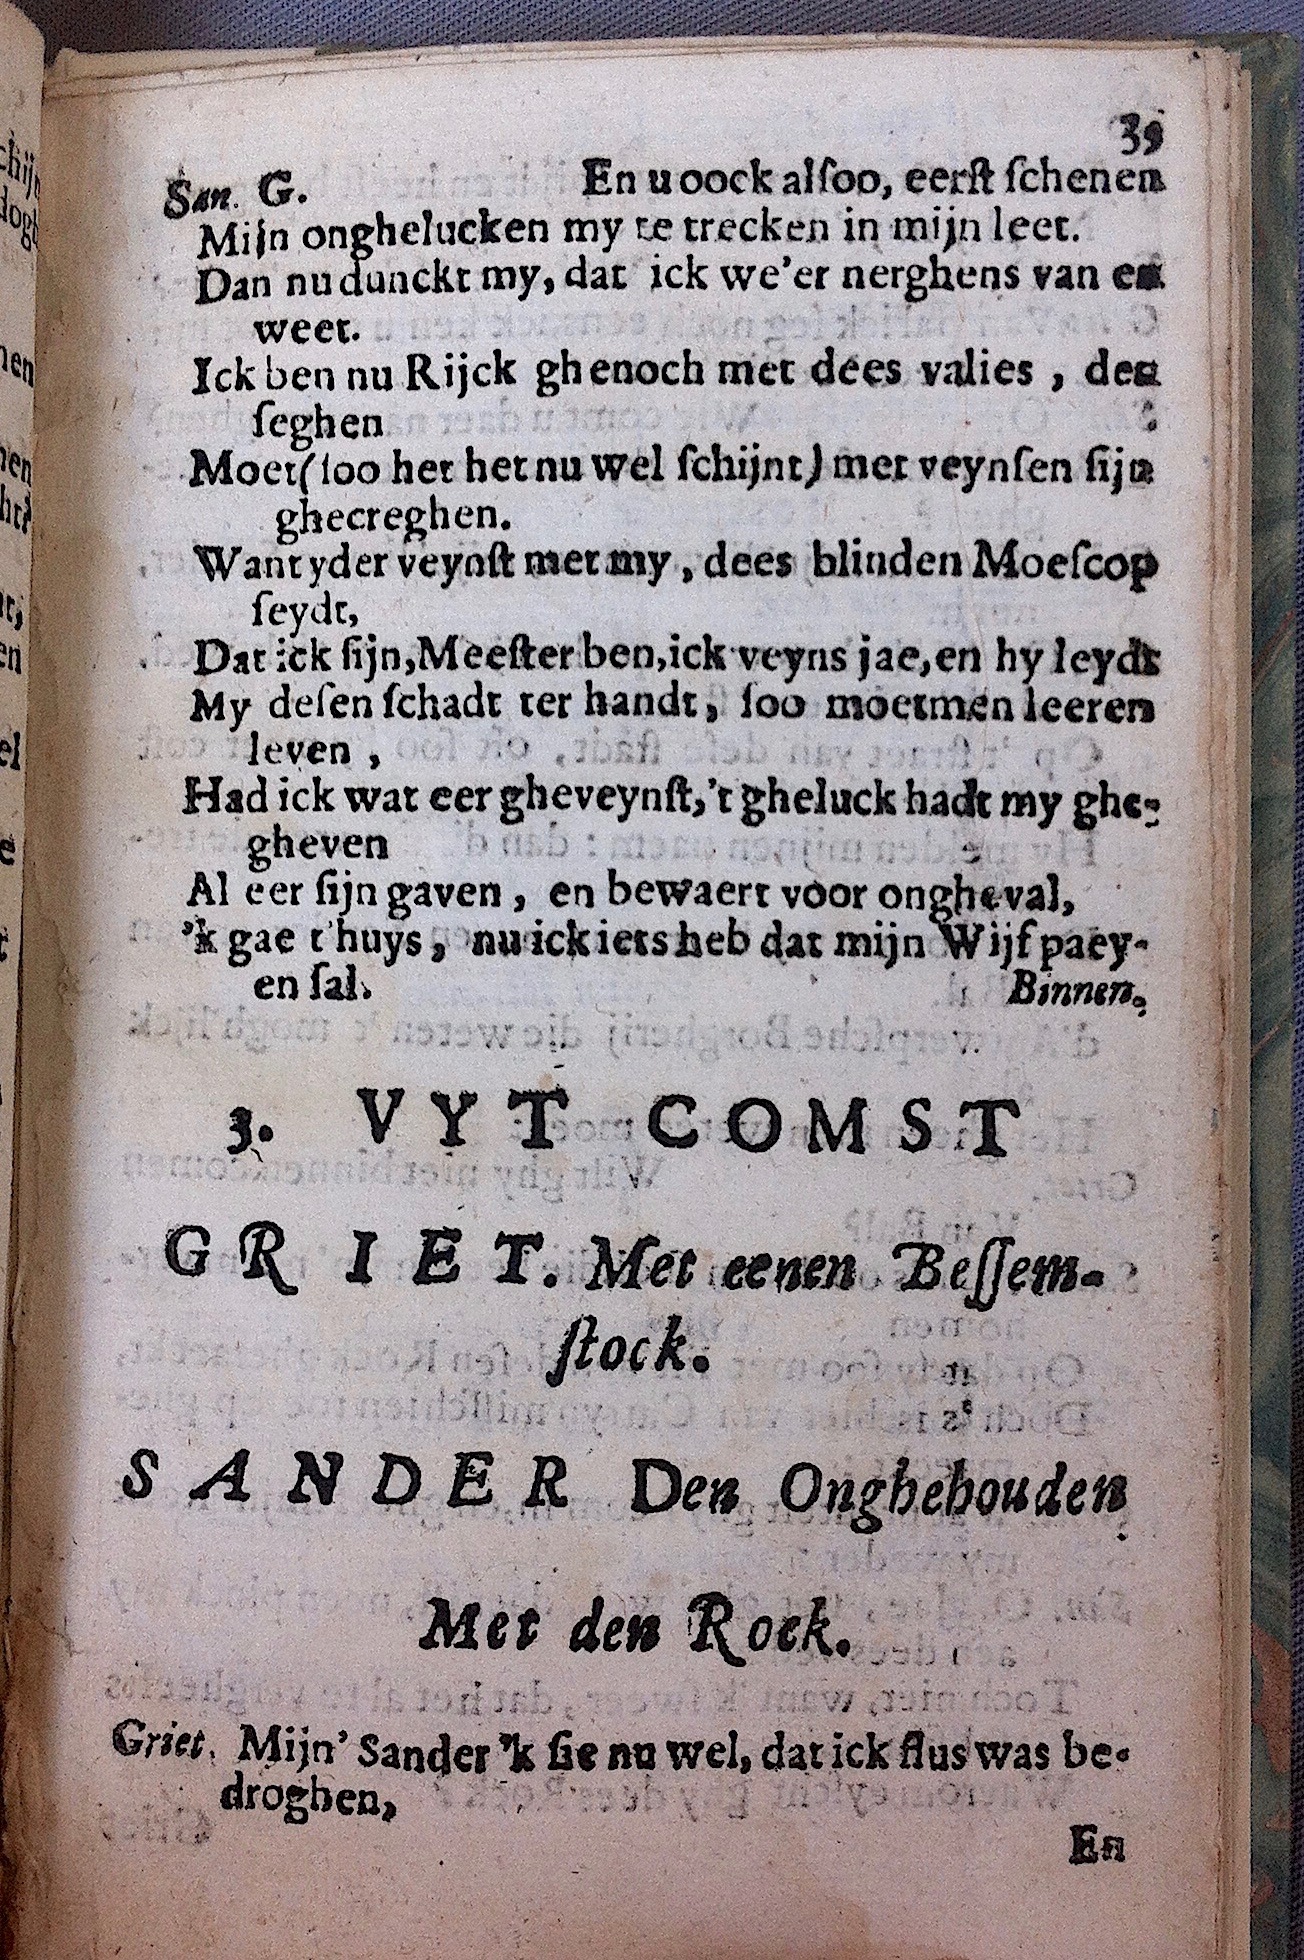 39
San. G. En u oock alſoo, eerſt ſchenen
Mijn onghelucken my te trecken in mijn leet.
Dan nu dunckt my, dat ick we'er nerghens van en
weet.
Ick ben nu Rijck ghenoch met dees valies, den
ſeghen
Moet (ſoo het het nu wel ſchijnt) met veynſen ſijn
ghecreghen.
Want yder veynſt met my, dees blinden Moeſcop
ſeydt,
Dat ick ſijn, Meeſter ben, ick veyns jae, en hy leydt
My deſen ſchadt ter handt, ſoo moetmen leeren
leven,
Had ick wat eer gheveynſt, 't gheluck hadt my ghe-
gheven
Al eer ſijn gaven, en bewaert voor ongheval,
'k gae t'huys, nu ick iets heb dat mijn Wijf paey-
en ſal. Binnen.
3. VYT COMST
GRIET. Met eenen Beſſem-
ſtock.
SANDER Den Onghehouden
Met den Rock.
Griet. Mijn' Sander 'k ſie nu wel, dat ick flus was be-
droghen,
En